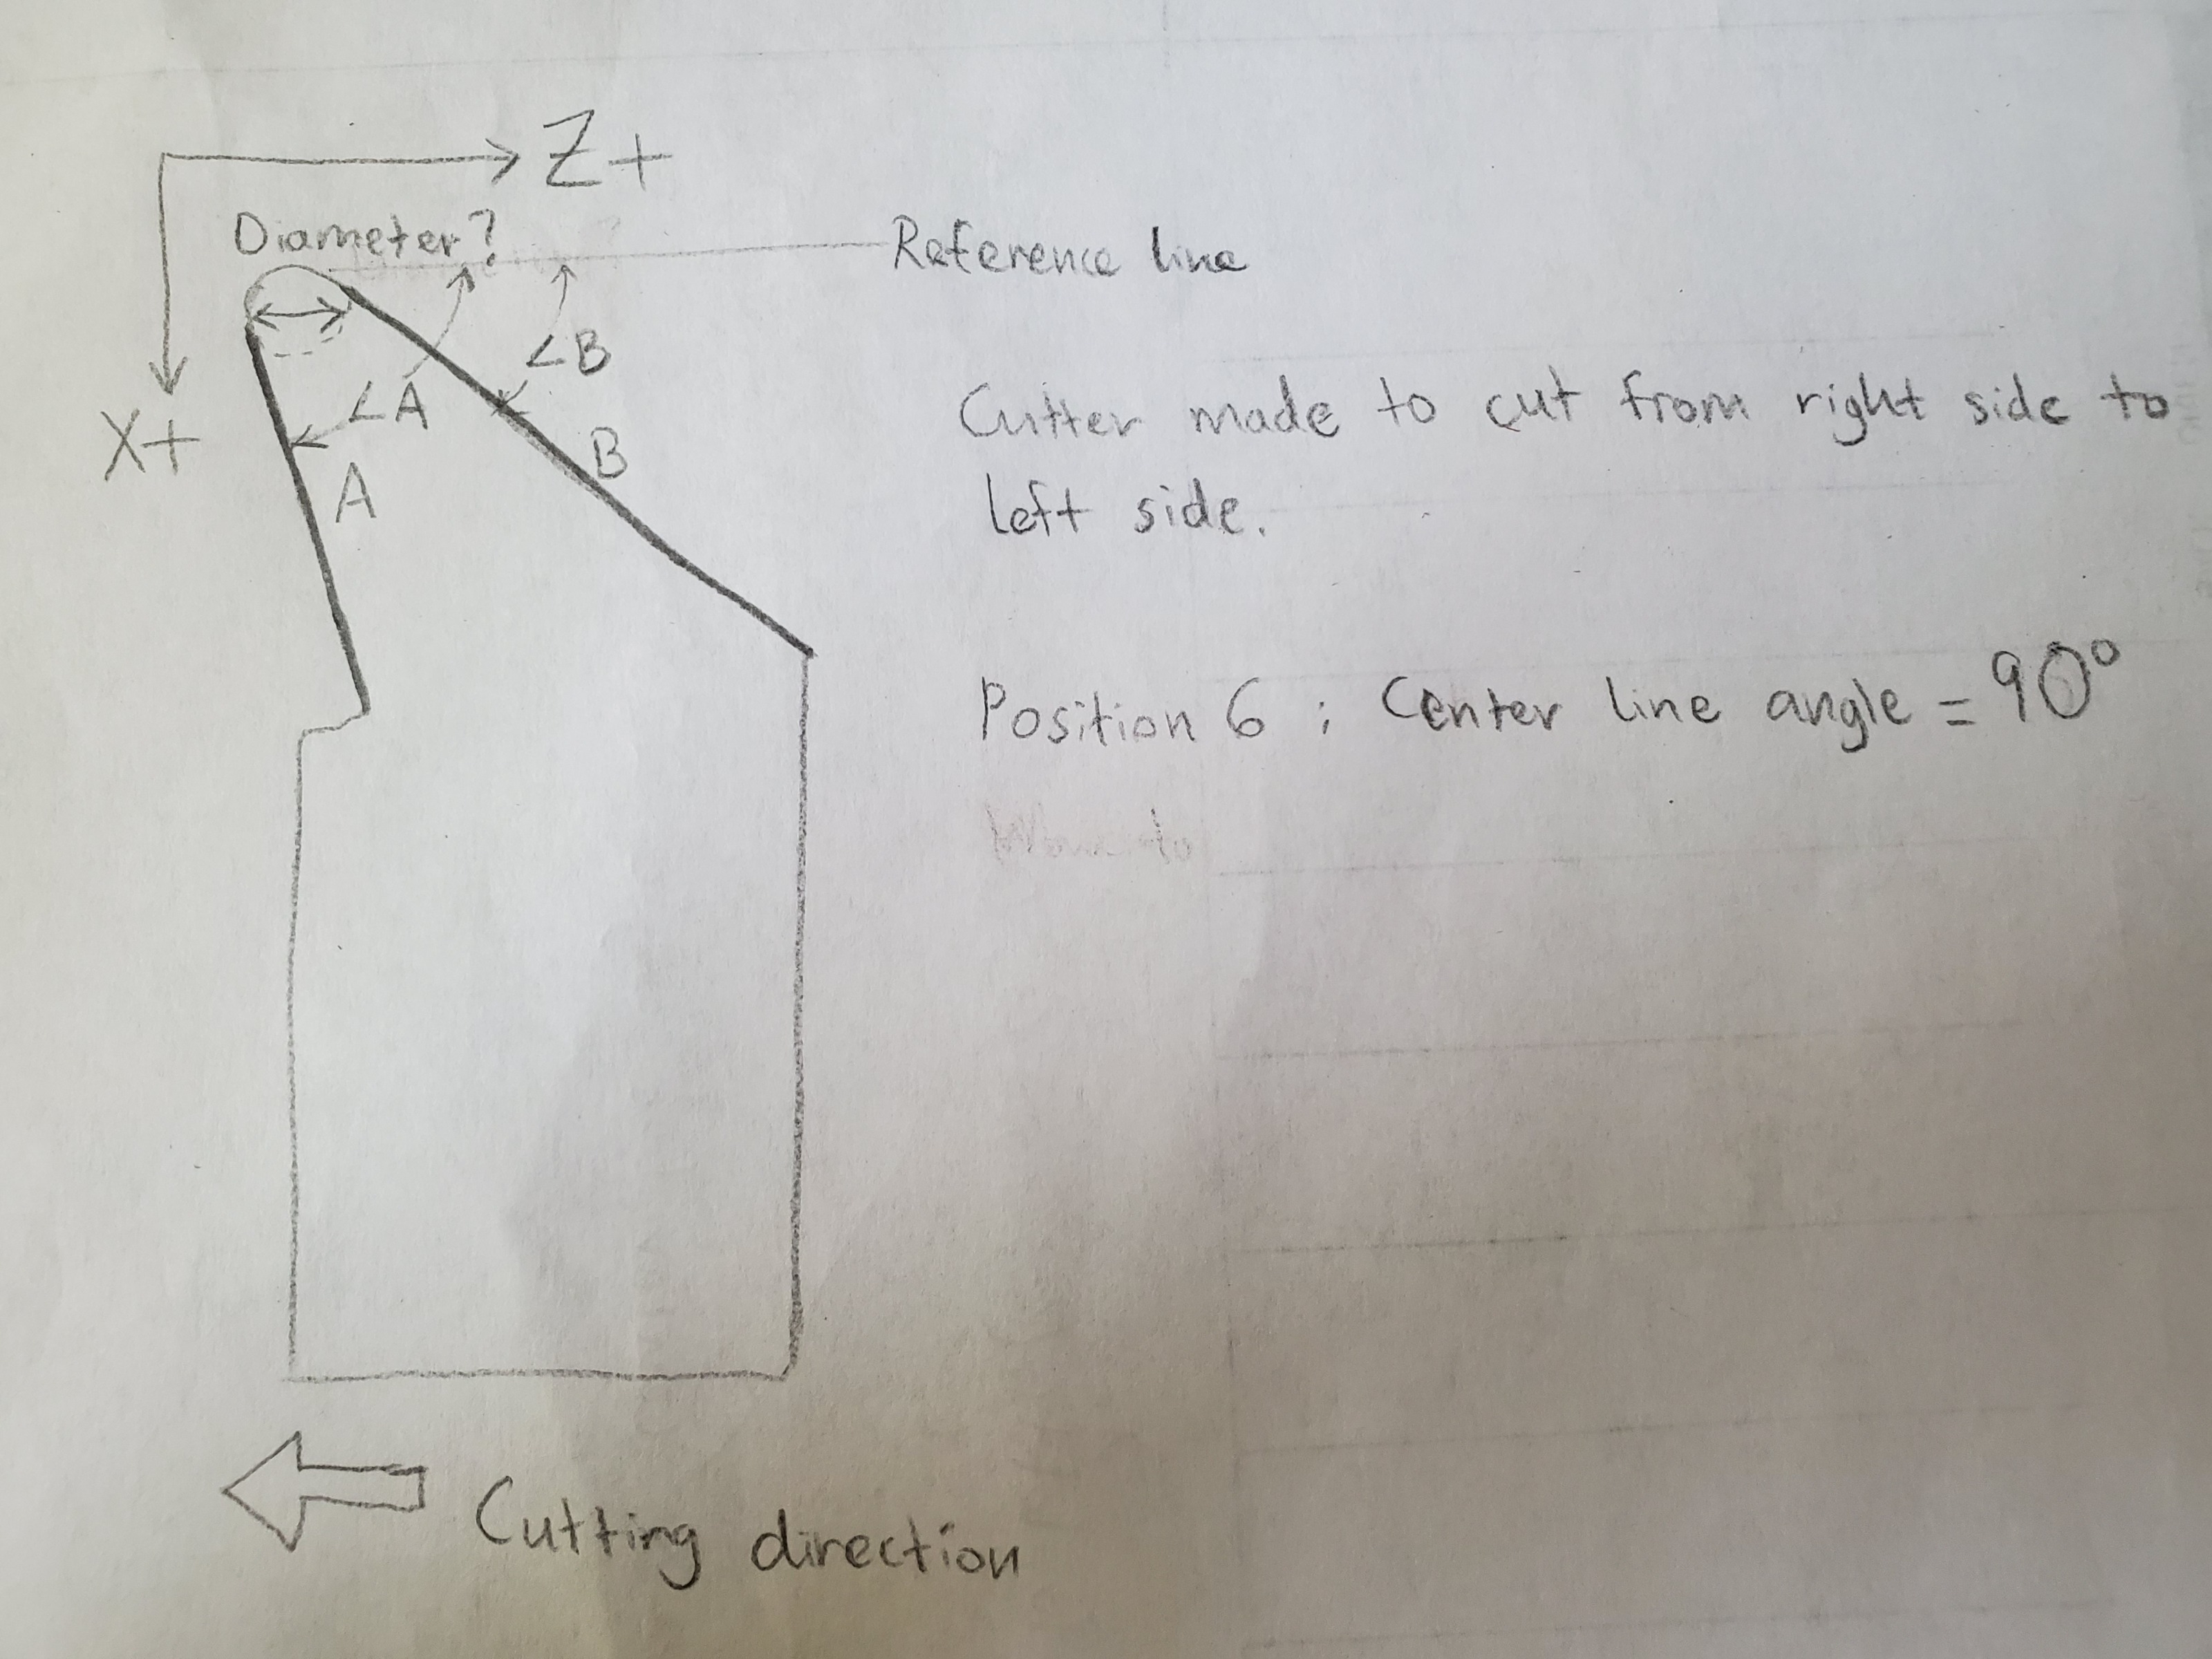 Z+
Diameter?
Reference line
∠B
∠A
X+
B
A
Cutter made to cut from right side to
left side.
Position 6 : Center line angle = 90°
Cutting direction